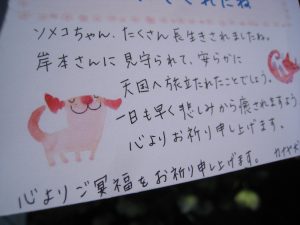 ソメコちゃん、たくさん長生きされましたね。
岸本さんに見守られて、安らかに
天国へ旅立たれたことでしょう。
一日も早く悲しみから癒されますよう
心よりお祈り申し上げます。
心よりご冥福をお祈り申し上げます。